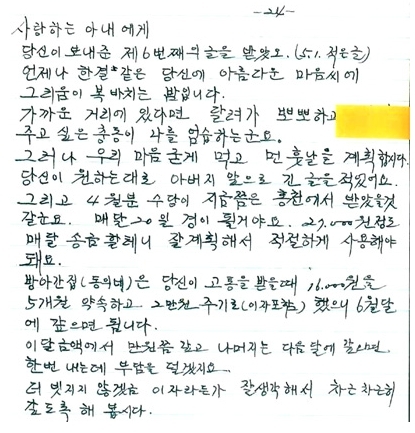 -24-
사랑하는 아내에게
당신이 보내준 제6번째의 글을 받았오. (5.1. 적은글)
언제나 한결같은 당신에 아름다운 마음씨에
그리움이 복바치는 밤입니다.
가까운 거리에 있다면 달려가 뽀뽀하고
주고 싶은 충동이 나를 엄습하는군요.
그러나 우리 마음 굳게 먹고 먼 훗날을 계획합시다.
당신이 원하는대로 아버지 앞으로 긴 글을 적었어요.
그리고 4월분 수당이 지금쯤은 홍천에서 받았을것
같군요. 매달 20일 경이 될거야요. 27,000원정도
매달 송금할테니 잘 계획해서 적절하게 사용해야
돼요.
방아간집(동의네)은 당신이 고통을 받을때 16,000원을
5개월 약속하고 2만원 주기로(이자포함) 했으니 6월달
에 갚으면 됩니다.
이달 금액에서 만원쯤 갚고 나머지는 다음달에 갚으면
한번 내는데 부담을 덜겠지요
더 빚지지 않겠금 이자라든가 잘생각해서 차근차근히
갚도록 해 봅시다.